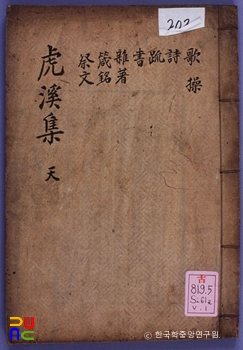 202
歌操
詩
疏
書
雜著
箴銘
祭文
虎溪集 天
古
819.5
S-61z
V.1
ⓒ 한국학중앙연구원